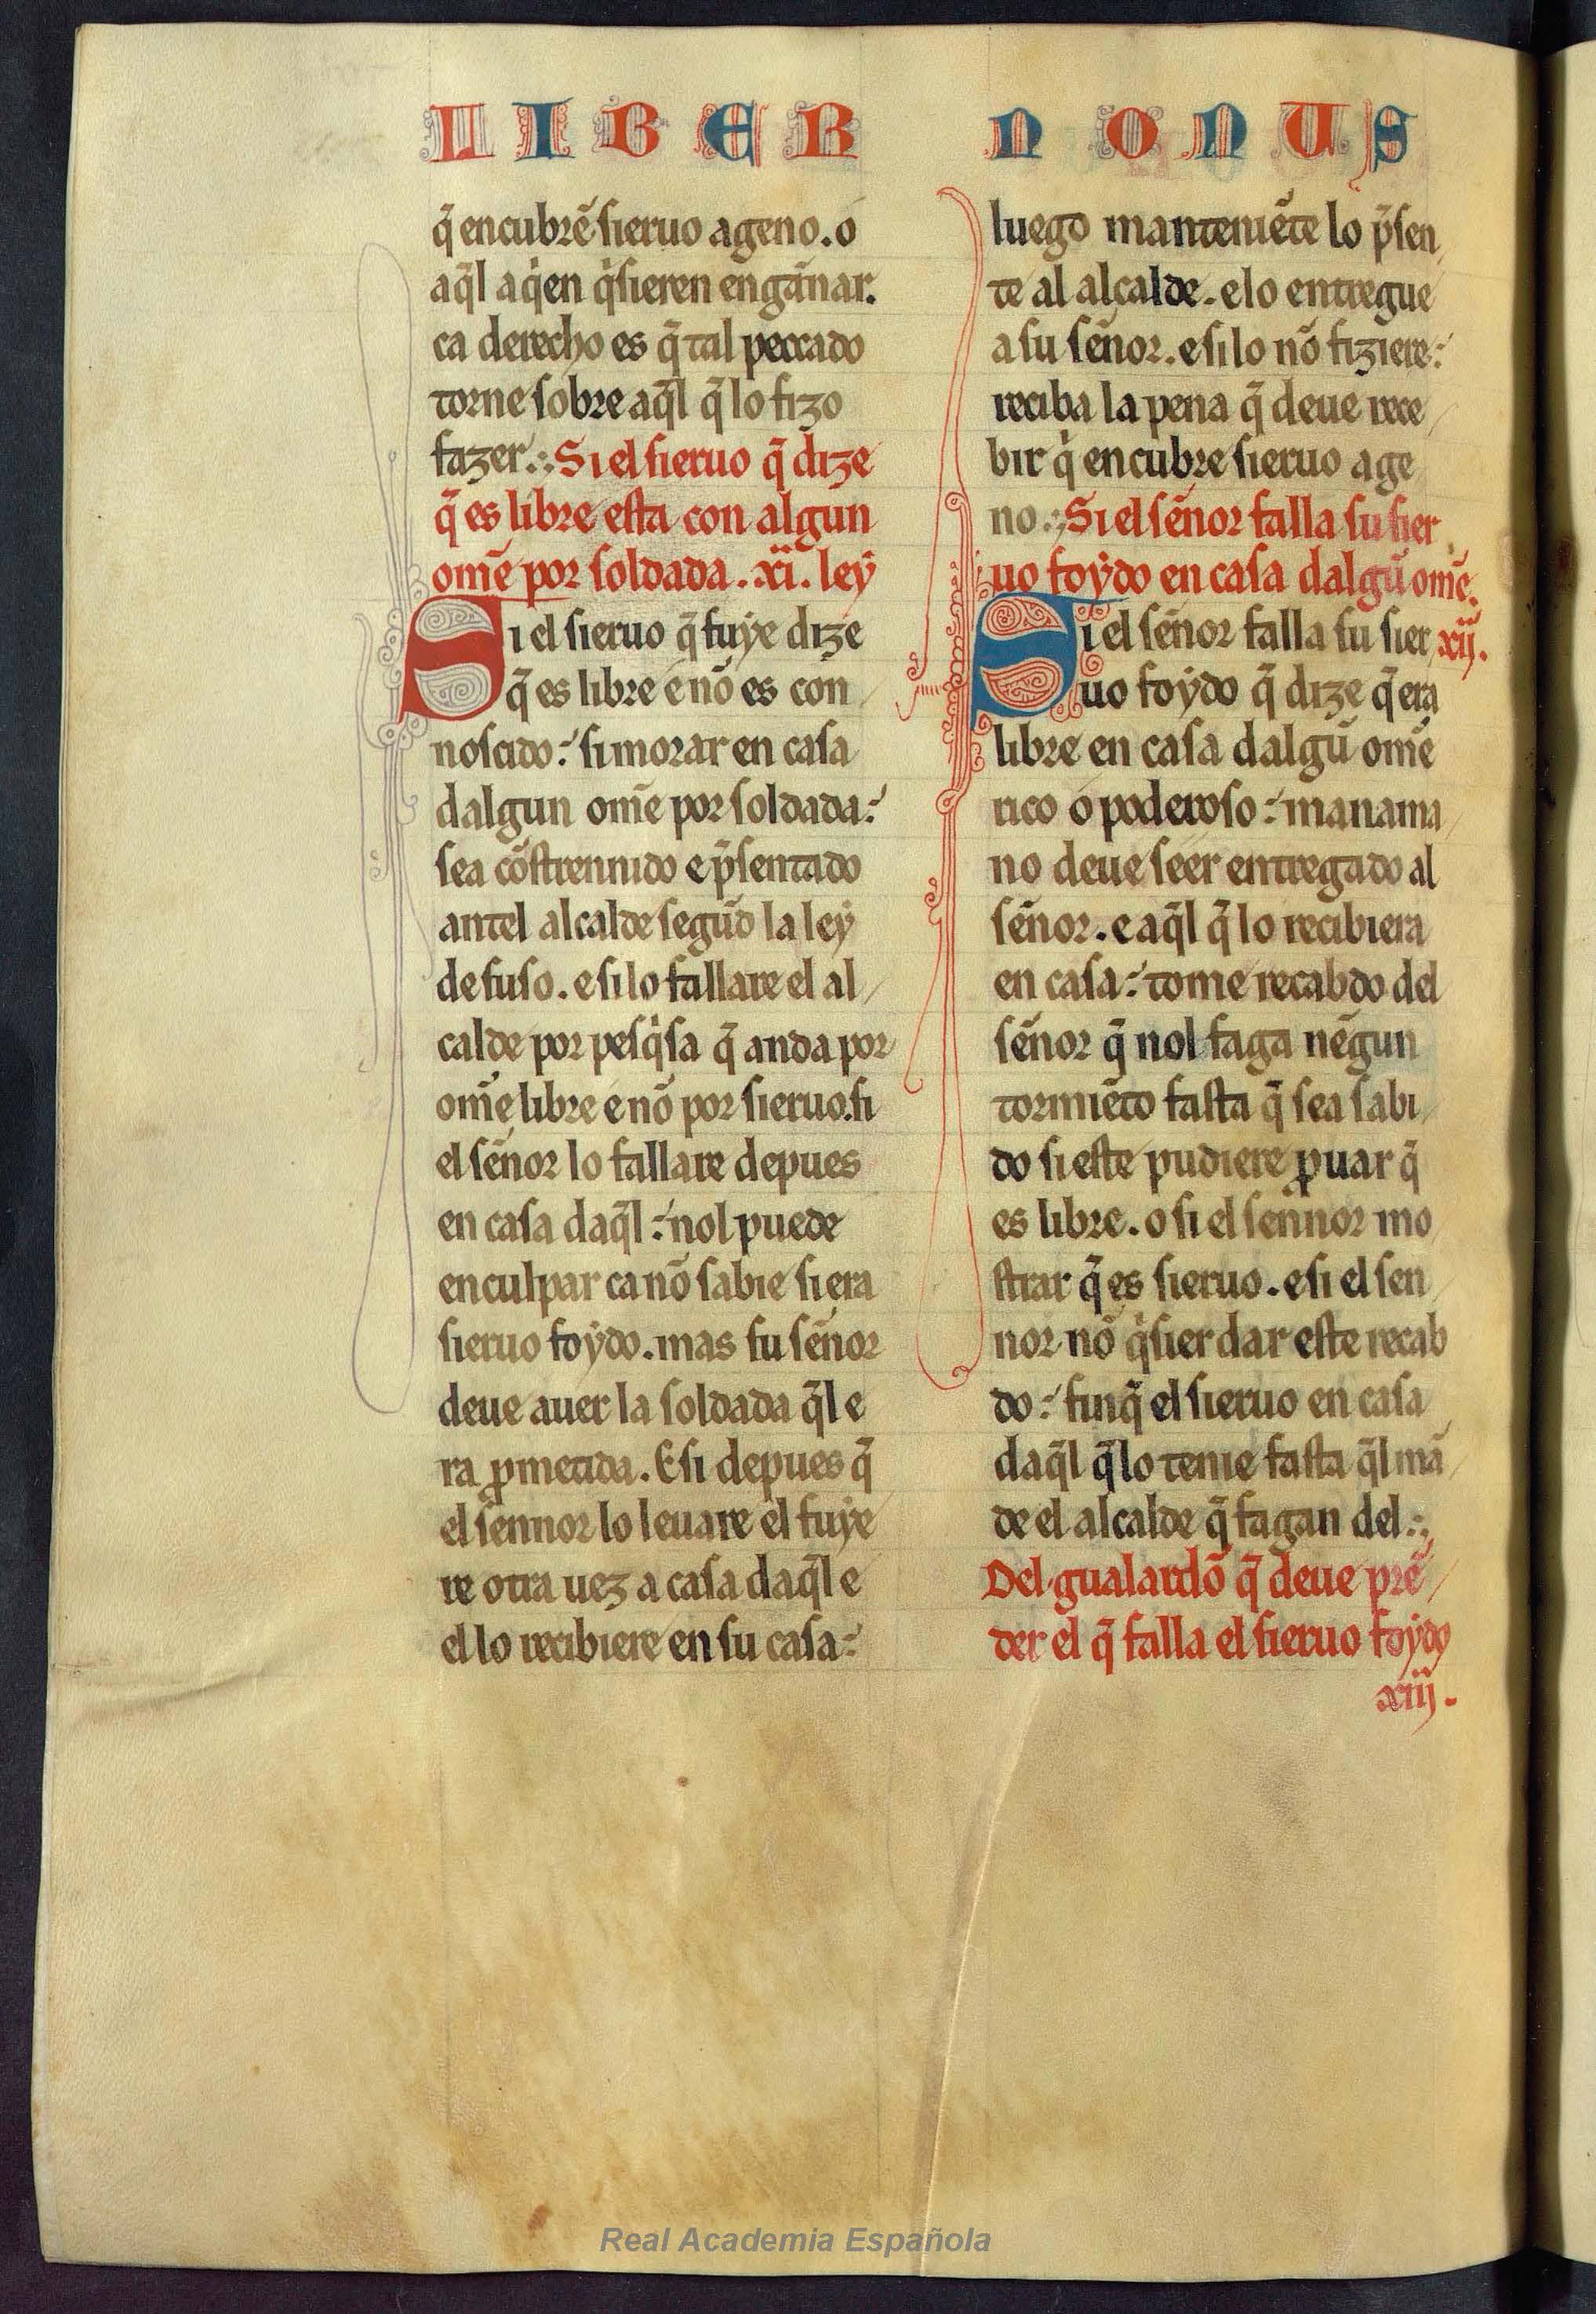 LIBER NONUS
q̃ encubrẽ sieruo ageno. o
aq̃l aq̇en q̇sieren engãnar.
ca derecho es q̃ tal peccado
torne sobre aq̃l q̃ lo fizo
fazer.:. Si el sieruo q̃ dize
q̃ es libre esta con algun
om̃e por soldada. xi. ley
Si el sieruo q̃ fuye dize
q̃ es libre e nõ es con
noscido: si morar en casa
dalgun om̃e por soldada:
sea cõstrennido e p̃sentado
antel alcalde segũd la ley
de suso. e si lo fallare el al
calde por pesq̇sa q̃ anda por
om̃e libre e nõ por sieruo. si
el sẽnor lo fallare depues
en casa daq̃l: nol puede
enculpar ca nõ sabie si era
sieruo foydo. mas su sẽnor
deue auer la soldada q̃l e
ra ꝓmetida. E si depues q̃
el sennor lo leuare el fuye
re otra uez a casa daq̃l e
el lo recibiere en su casa:
luego manteniẽte lo p̃sen
te al alcalde. e lo entregue
a su sẽnor. e si lo nõ fiziere:
reciba la pena q̃ deue rece
bir q̇ encubre sieruo age
no.:. Si el sẽnor falla su sier
uo foydo en casa dalgũ om̃e.
Si el sẽnor falla su sier xij.
uo foydo q̃ dize q̃ era
libre en casa dalgũ om̃e
rico o poderoso: manama
no deue seer entregado al
sẽnor. e aq̃l q̃ lo recibiera
en casa: tome recabdo del
sẽnor q̃ nol faga nẽgun
tormiẽto fasta q̃ sea sabi
do si este pudiere ꝓuar q̃
es libre. o si el sennor mo
strar q̃ es sieruo. e si el sen
nor nõ q̇sier dar este recab
do: finq̃ el sieruo en casa
daq̃l q̃ lo tenie fasta q̃l mã
de el alcalde q̃ fagan del.:.
Del gualardõ q̃ deue prẽ
der el q̃ falla el sieruo foydo
xiij.
Real Academia Española